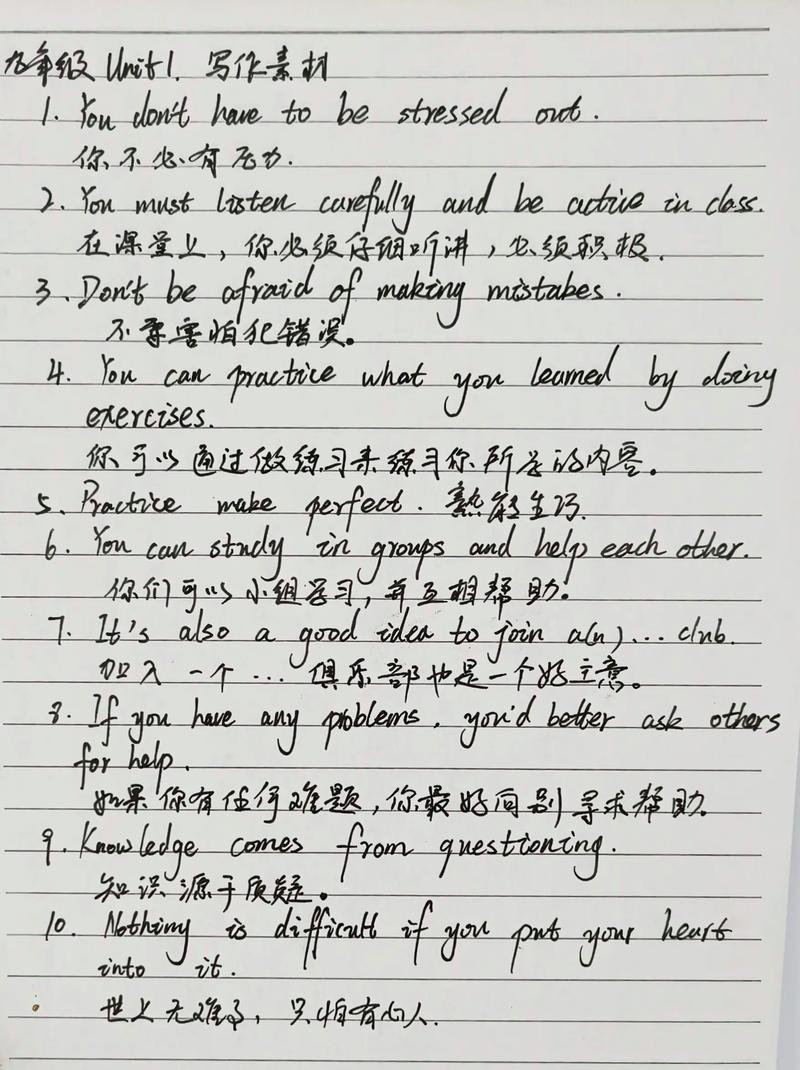 九年级 Unit 1. 写作素材
1. You don't have to be stressed out.
你不必有压力.
2. You must listen carefully and be active in class.
在课堂上，你必须仔细听讲，必须积极.
3. Don't be afraid of making mistakes.
不要害怕犯错误。
4. You can practice what you learned by doing
exercises.
你可以通过做练习来练习你所学的内容。
5. Practice make perfect. 熟能生巧.
6. You can study in groups and help each other.
你们可以小组学习，并互相帮助。
7. It's also a good idea to join a(n)... club.
加入一个...俱乐部也是一个好主意。
8. If you have any problems, you'd better ask others
for help.
如果你有任何难题，你最好向别寻求帮助.
9. Knowledge comes from questioning.
知识源于质疑。
10. Nothing is difficult if you put your heart
into it.
世上无难事，只怕有心人.